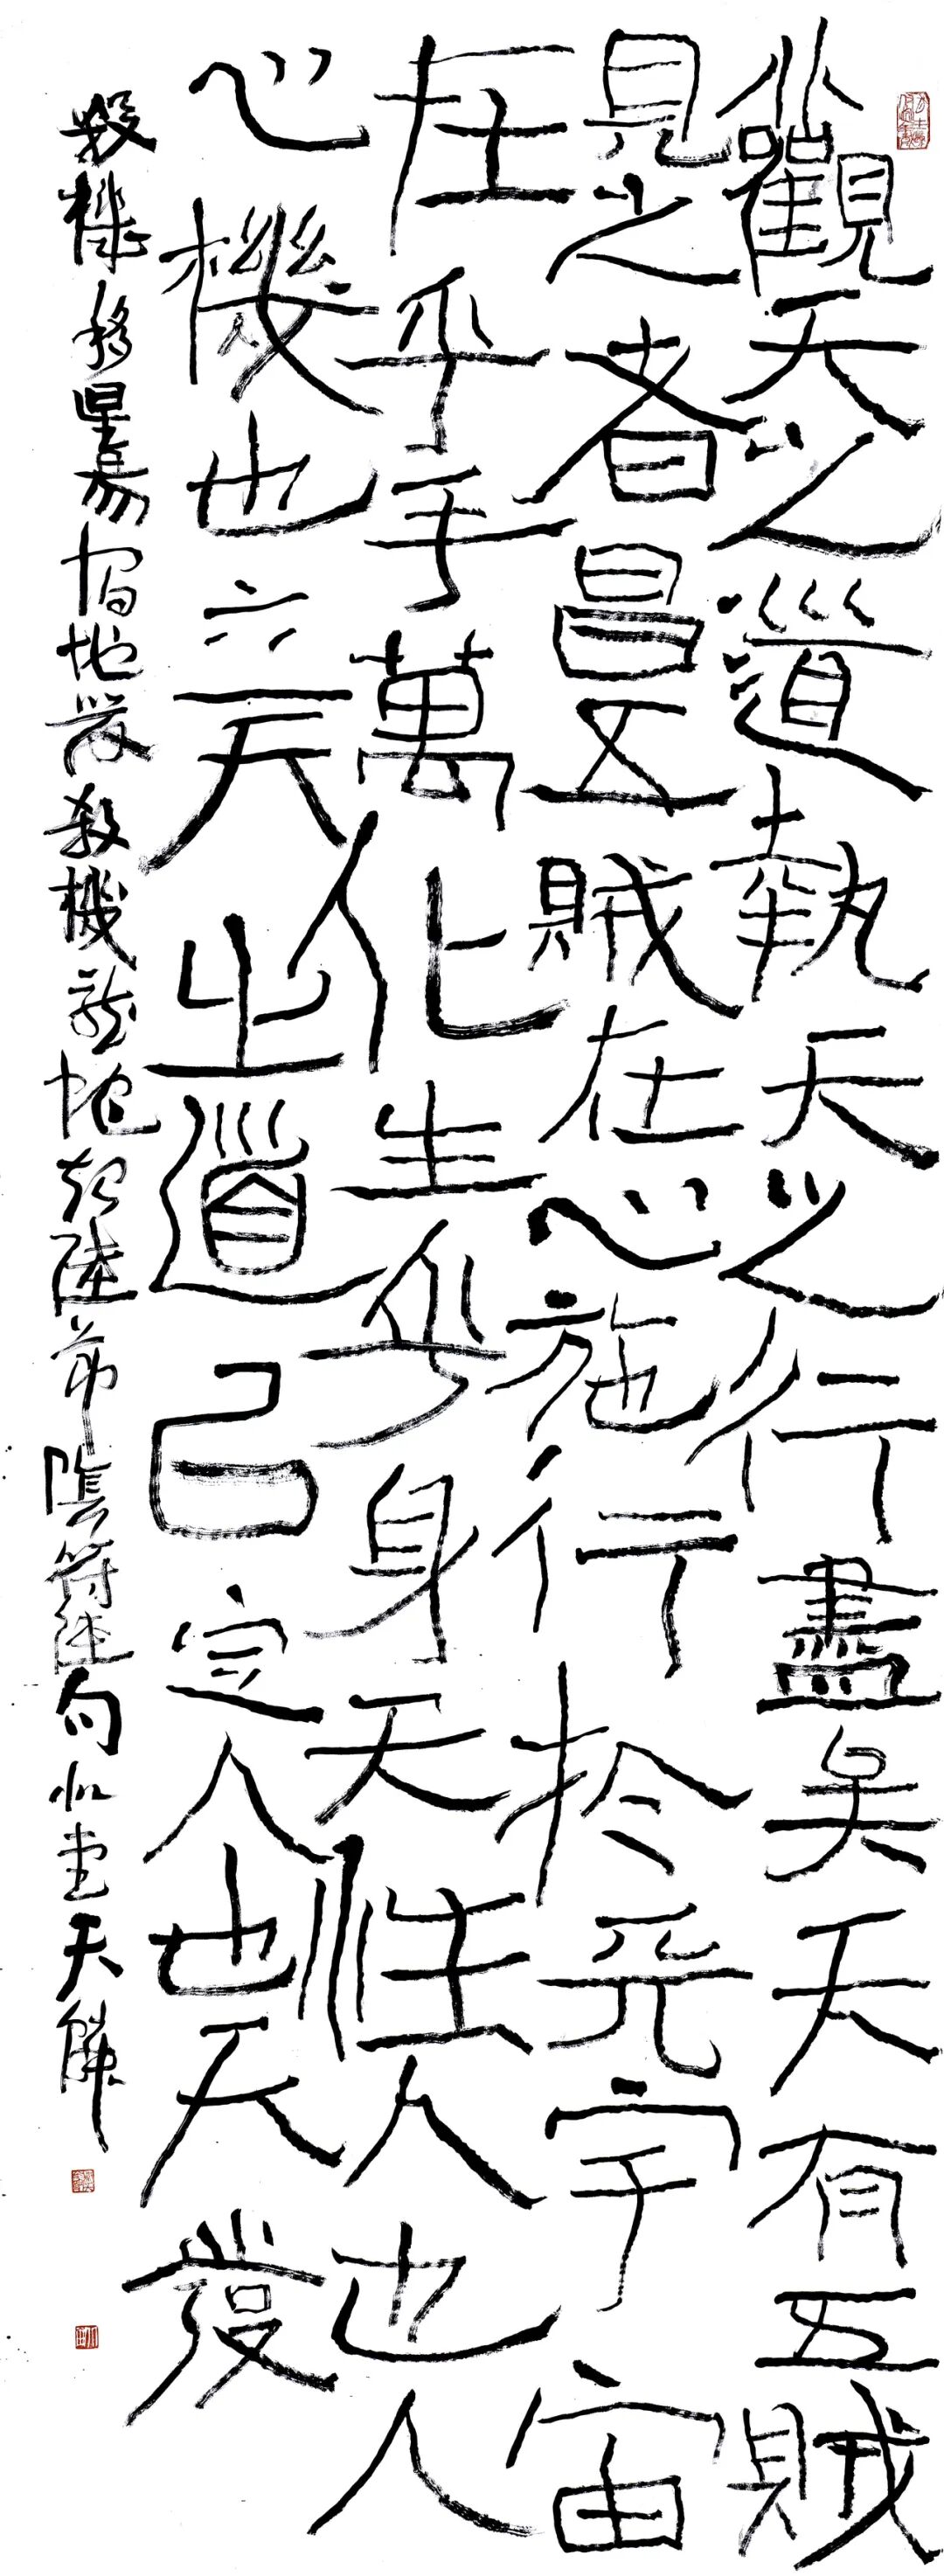 觀天之道執天之行盡矣天有五賊
見之者昌五賊在心施行於天宇宙
在乎手萬化生乎身天性人也人
心機也立天之道以定人也天發
殺機移星易宿地發殺機龍蛇起陸節陰符經句 堂天